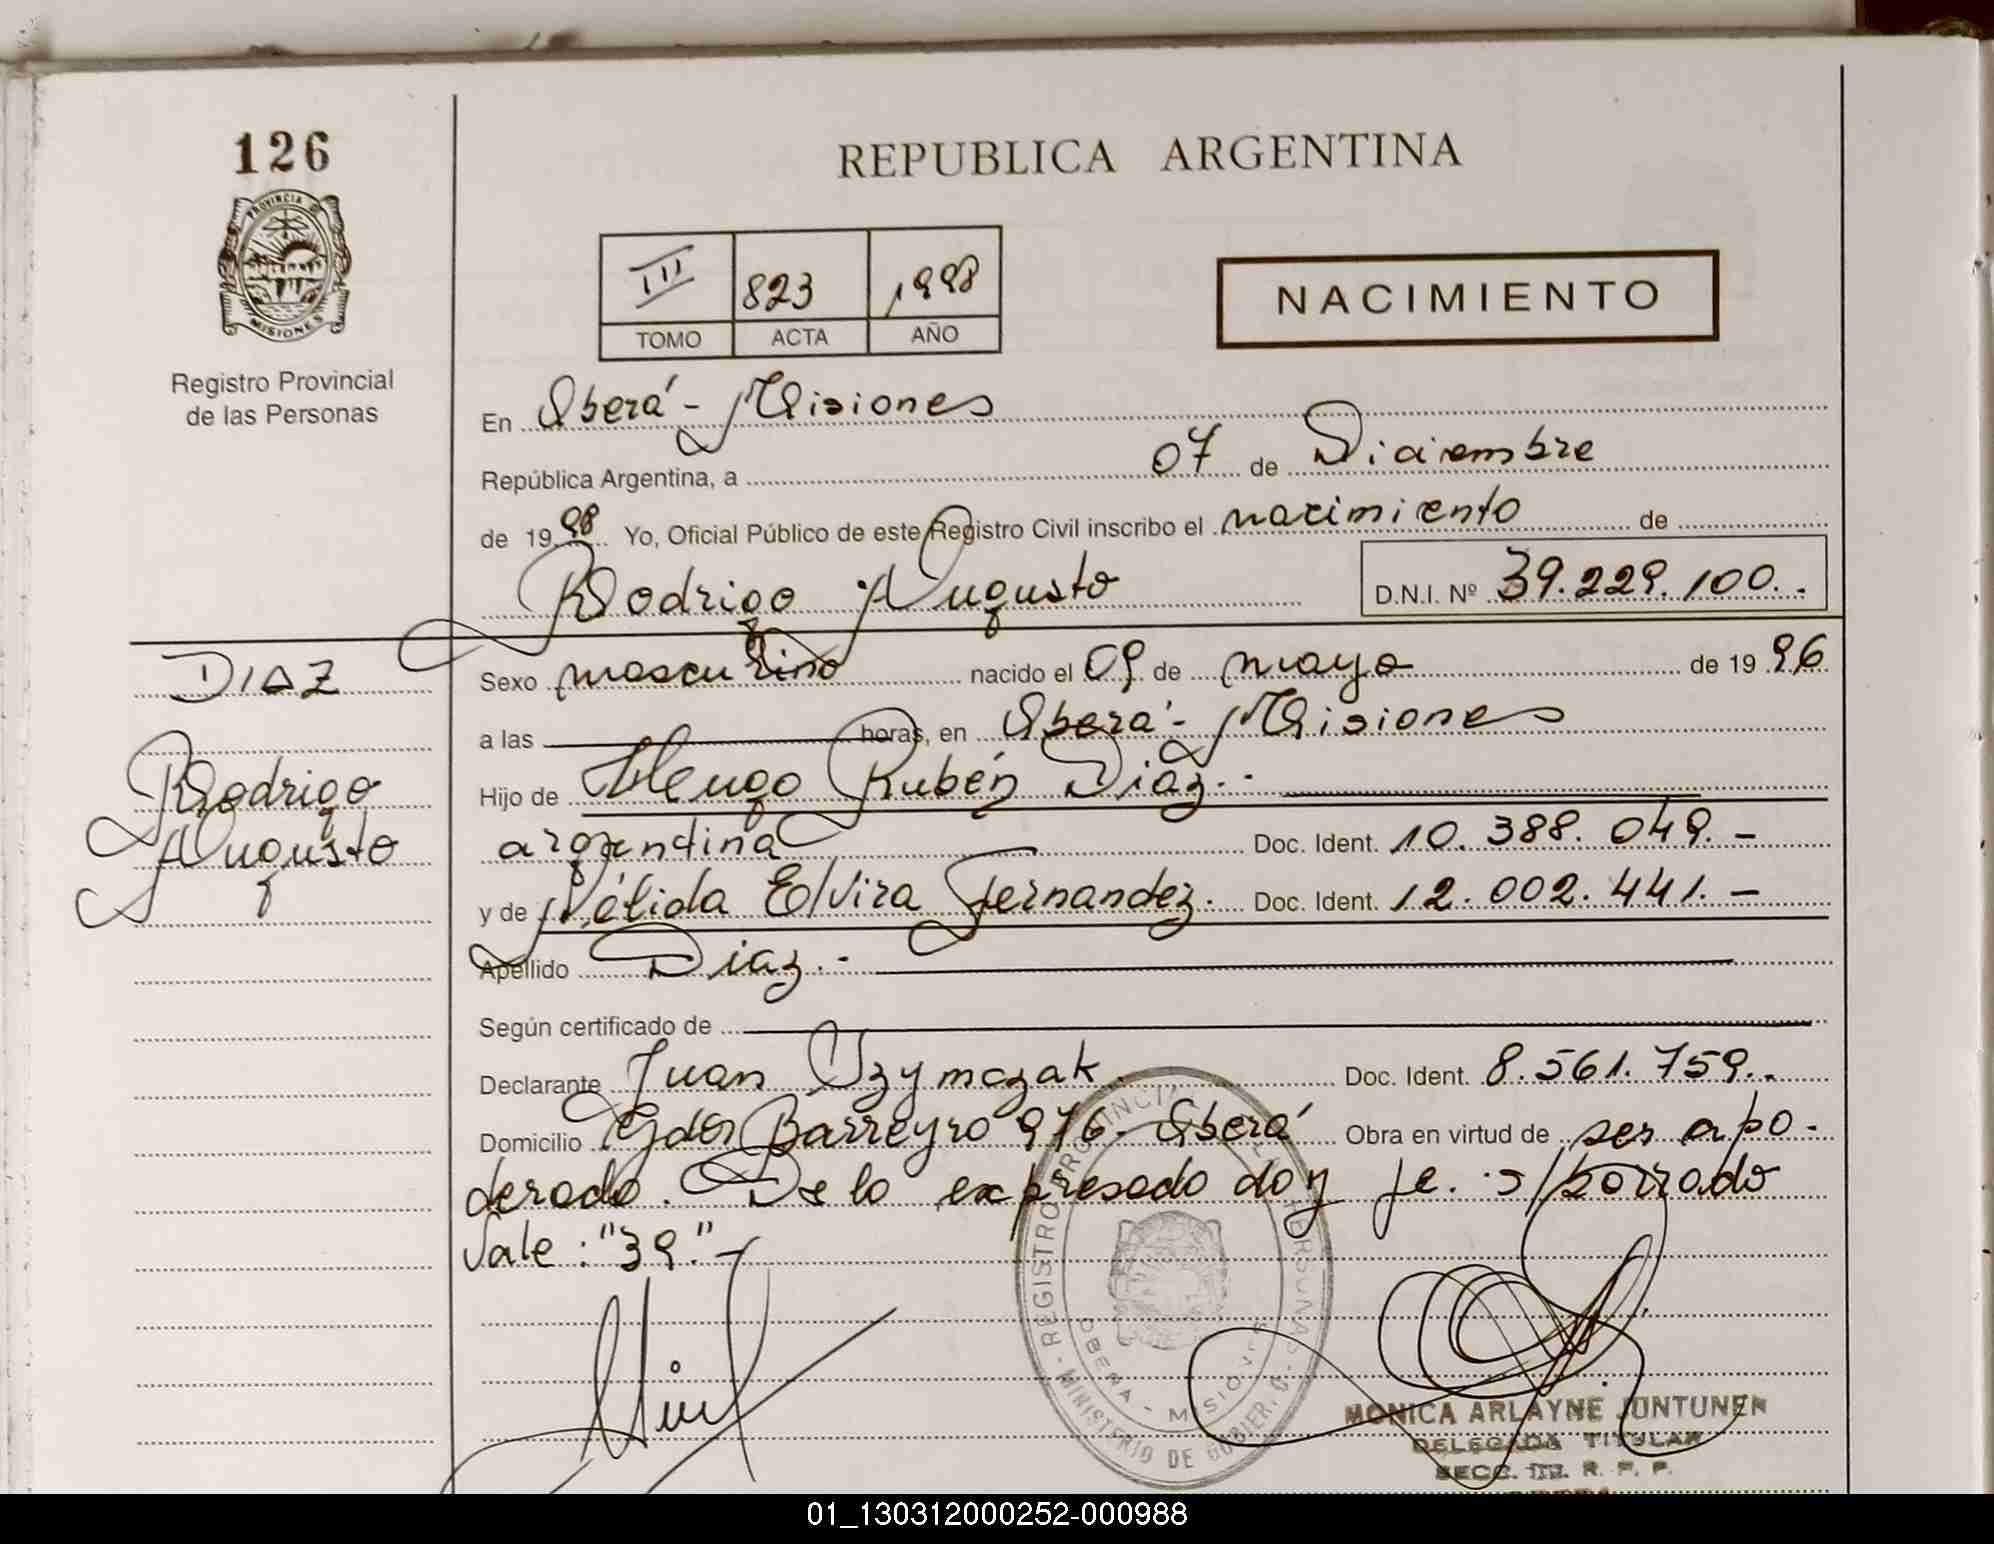 126
PROVINCIA D
MISIONES
Registro Provincial
de las Personas
REPUBLICA ARGENTINA
III 823 1998
TOMO ACTA AÑO
NACIMIENTO
En Oberá - Misiones
República Argentina, a 07 de Diciembre
de 1998 Yo, Oficial Público de este Registro Civil inscribo el nacimiento de
Rodrigo Augusto D.N.I. Nº 39.229.100.-
DIAZ
Rodrigo
Augusto
Sexo masculino nacido el 09 de mayo de 1996
a las horas, en Oberá - Misiones
Hijo de Hugo Rubén Diaz.-
argentina Doc. Ident. 10.388.049.-
y de Nélida Elvira Fernandez. Doc. Ident. 12.002.441.-
Apellido Diaz.-
Según certificado de
Declarante Juan Szymczak. Doc. Ident. 8.561.759.-
Domicilio Gdor Barreyro 976 - Oberá Obra en virtud de ser apo-
derado. De lo expresado doy fe. s/borrado
Vale: "39."-
REGISTRO PROVINCIAL DE LAS PERSONAS
OBERA - MISIONES
MINISTERIO DE GOBIERNO
MONICA ARLAYNE JUNTUNEN
DELEGADA TITULAR
SECC. III. R. P. P.
01_130312000252-000988